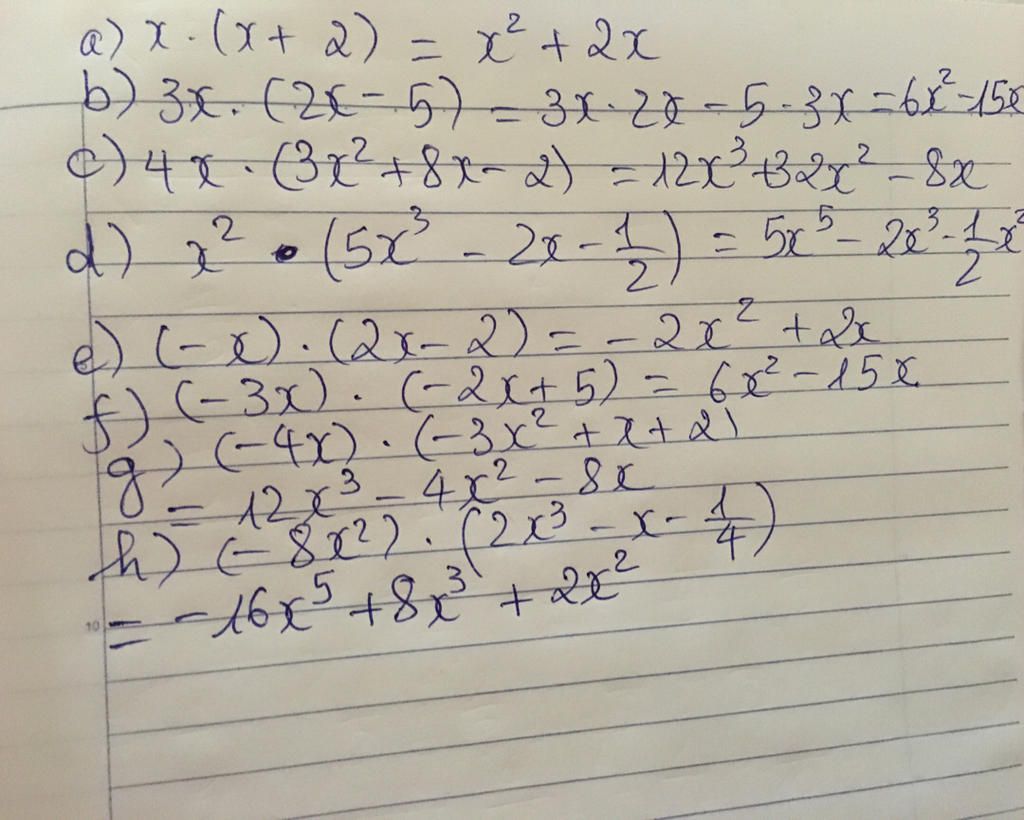 a) x · (x + 2) = x² + 2x
b) 3x · (2x - 5) = 3x · 2x - 5 · 3x = 6x² - 15x
c) 4x · (3x² + 8x - 2) = 12x³ + 32x² - 8x
d) x² · (5x³ - 2x - 1/2) = 5x⁵ - 2x³ - 1/2 x²
e) (- x) · (2x - 2) = - 2x² + 2x
f) (- 3x) · (- 2x + 5) = 6x² - 15x
g) (- 4x) · (- 3x² + x + 2)
= 12x³ - 4x² - 8x
h) (- 8x²) · (2x³ - x - 1/4)
10 = - 16x⁵ + 8x³ + 2x²